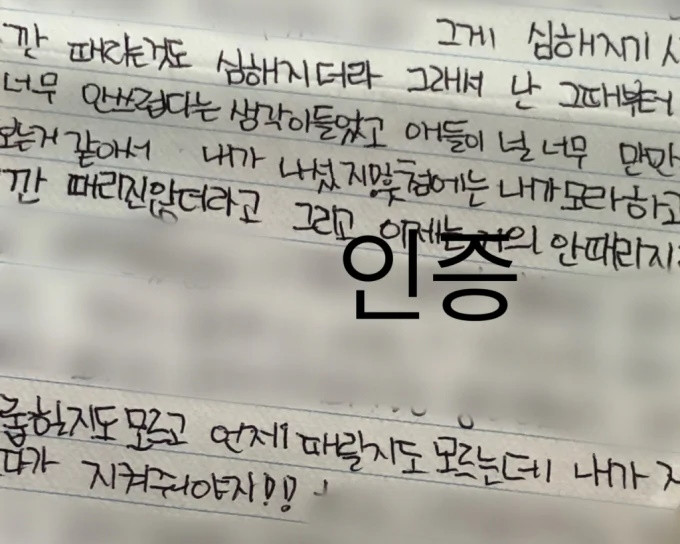 그게 심해지기 시
깐 때리는것도 심해지더라 그래서 난 그때부터
너무 안쓰럽다는 생각이들었고 애들이 널 너무 만만
보는거 같아서 내가 나섰지맞춤첨에는 내가모라하고
깐 때리진않더라고 그리고 이제는 거의 안때리지
인증
줍할지도 모르고 언제 때릴지도 모르는데 내가 지
다가 지켜줘야지!!